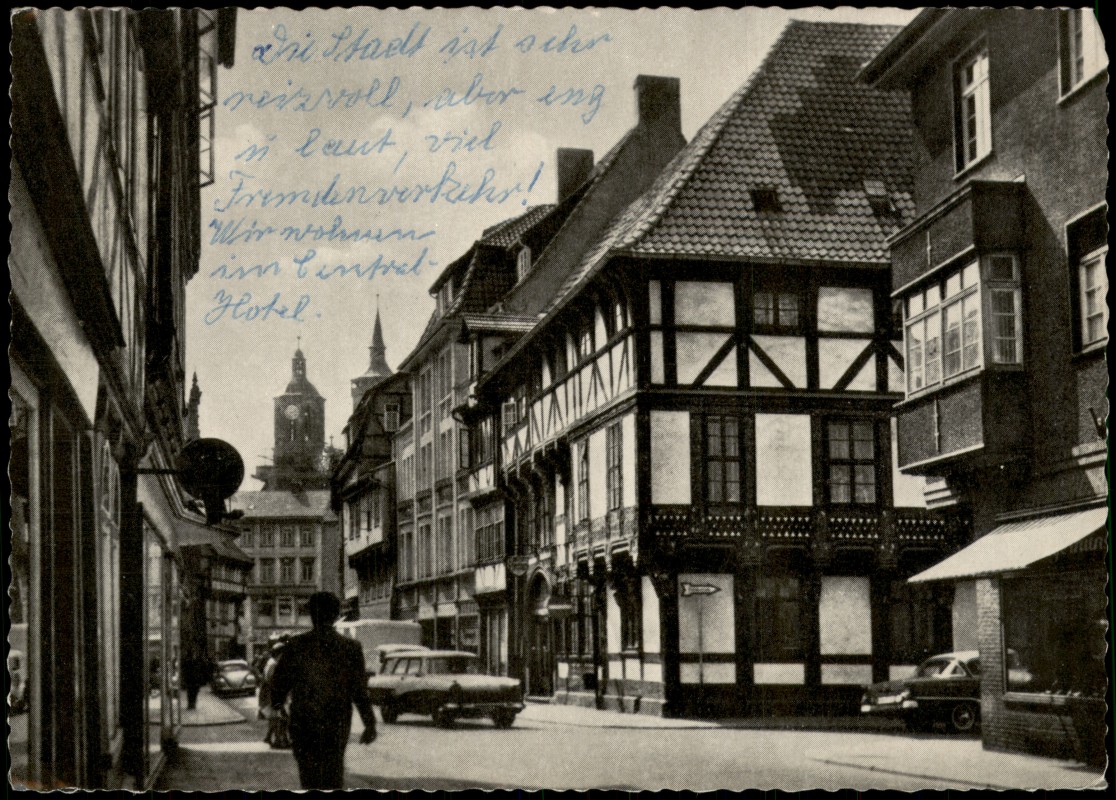 Die Stadt ist sehr
reizvoll, aber eng
u laut, viel
Fremdenverkehr!
Wir wohnen
im Central-
Hotel.